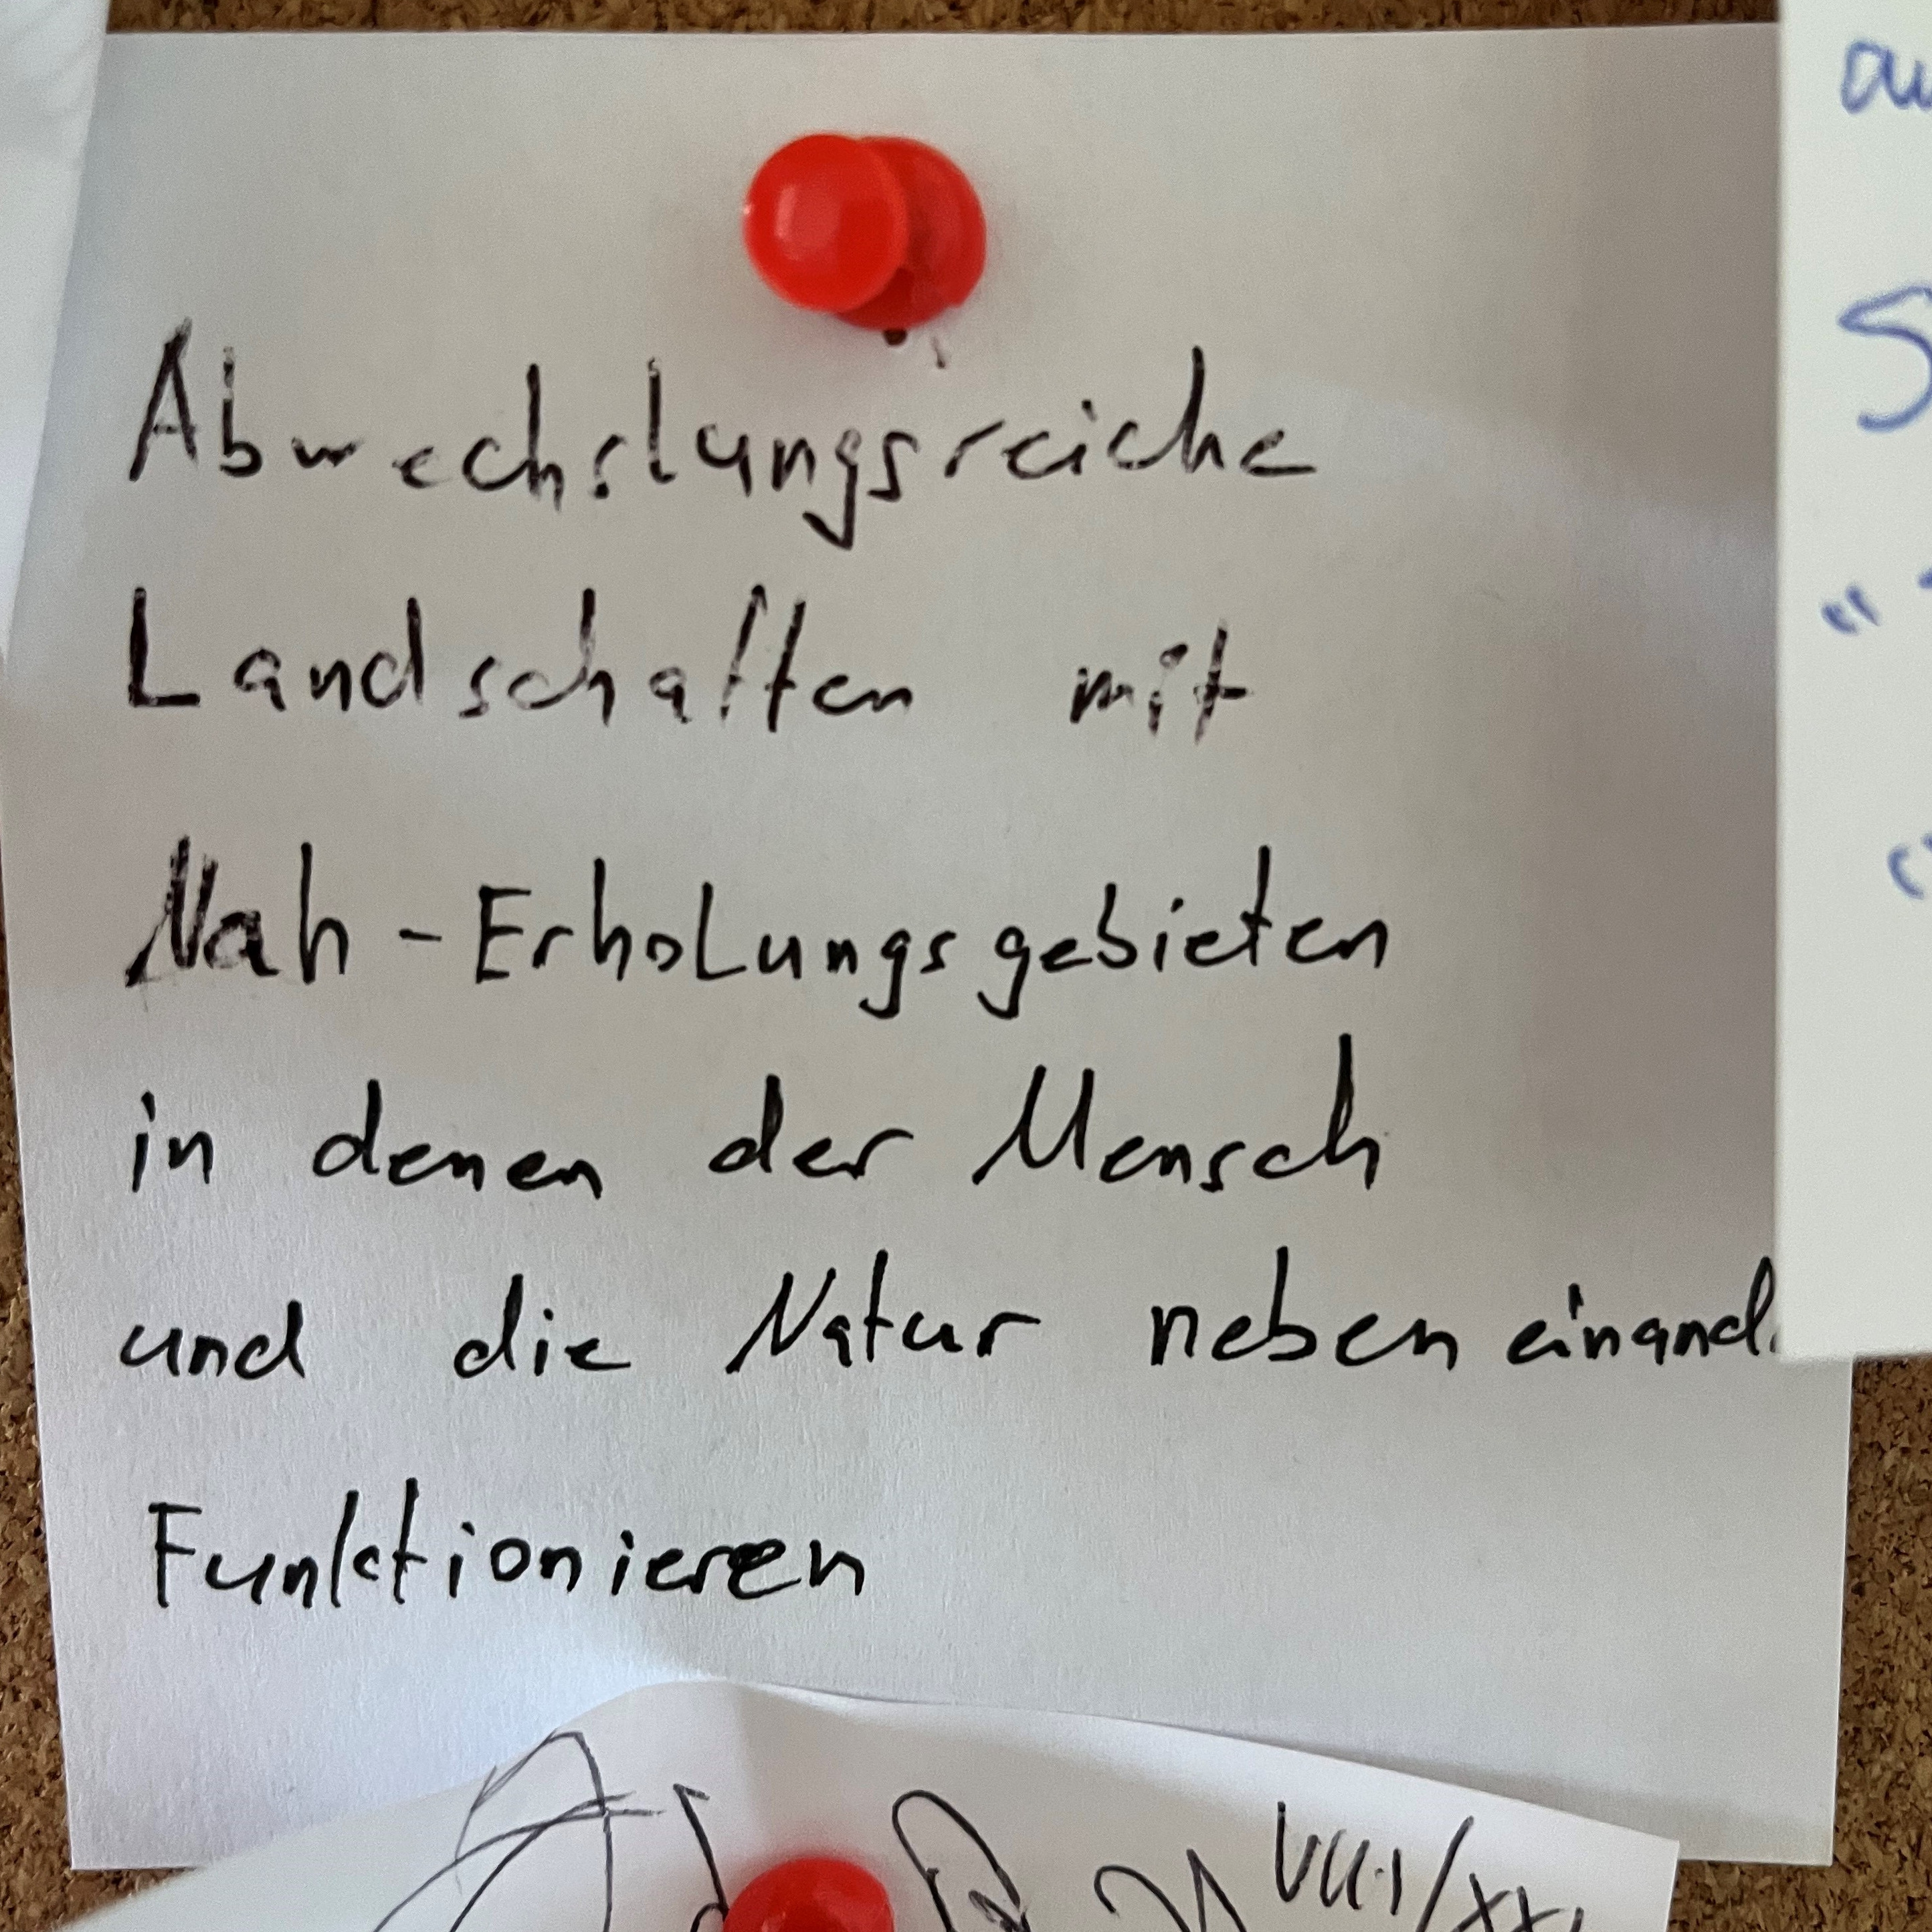 Abwechslungsreiche
Landschaften mit
Nah-Erholungsgebieten
in denen der Mensch
und die Natur neben einand
Funktionieren